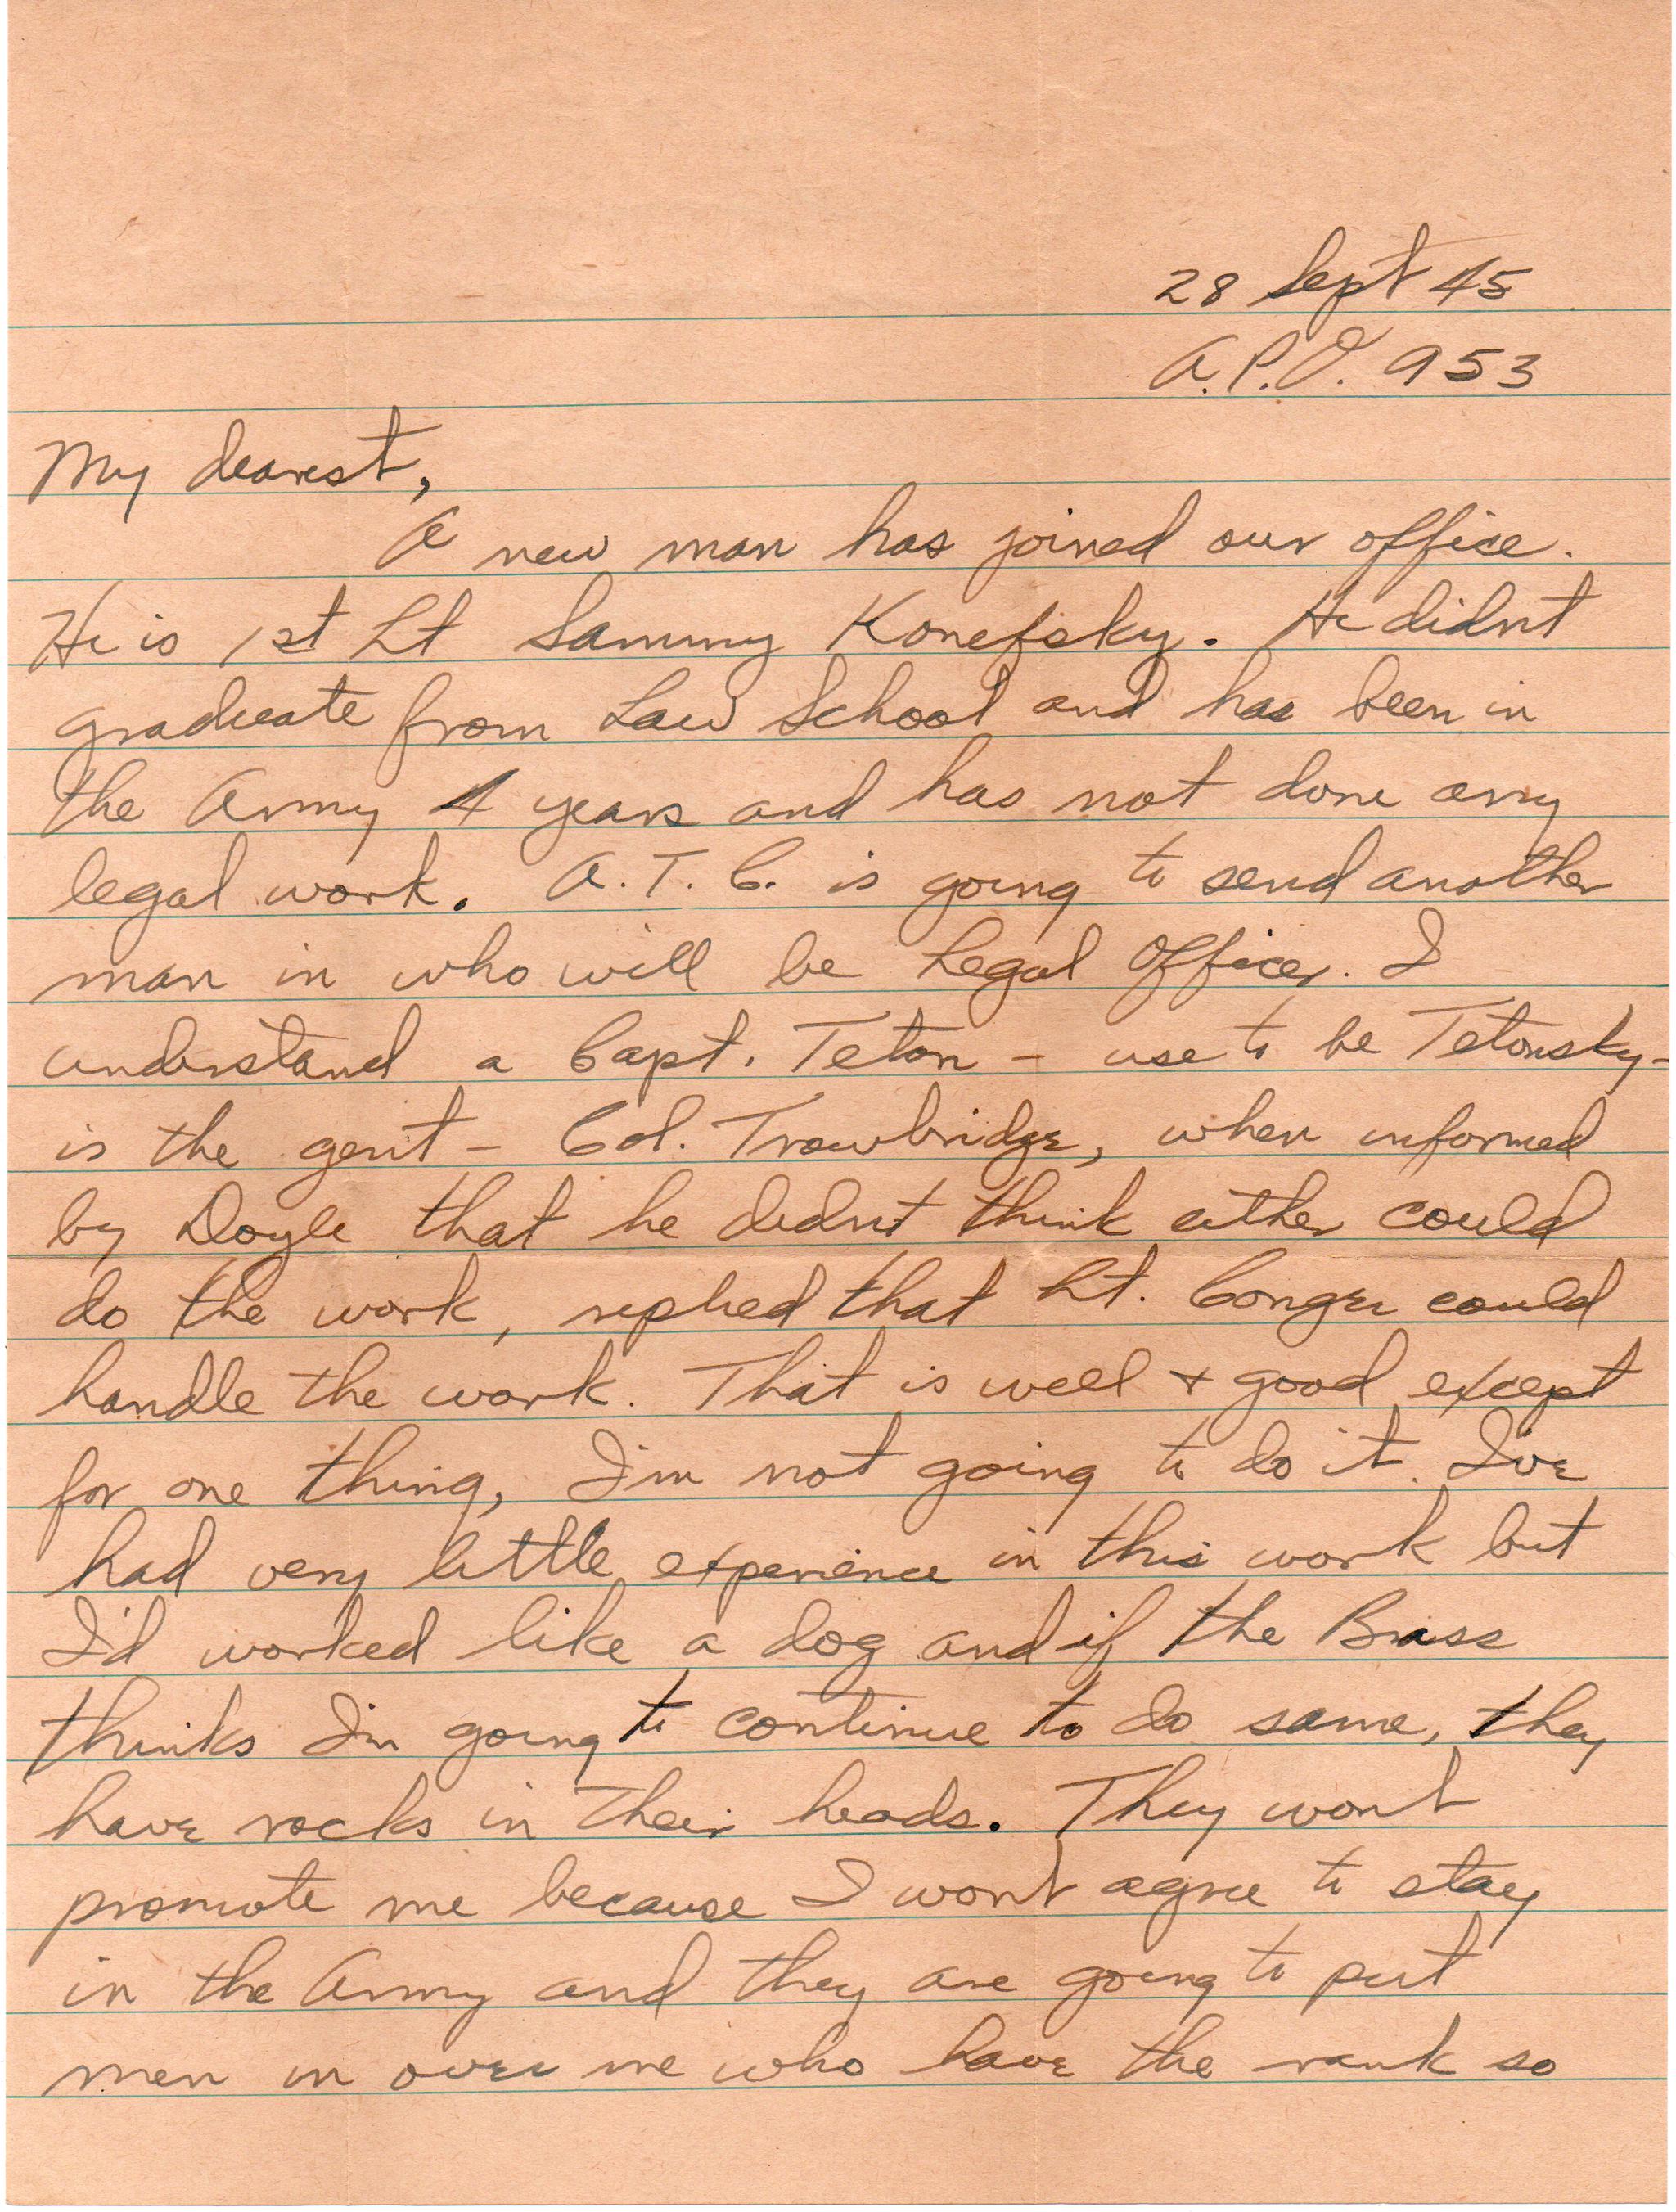 28 Sept 45
A.P.O. 953
My dearest,
A new man has joined our office.
He is 1st Lt Sammy Konefsky. He didnt
graduate from Law School and has been in
the Army 4 years and has not done any
legal work. A.T.C. is going to send another
man in who will be Legal Officer. I
understand a Capt. Teton - use to be Tetonsky -
is the gent - Col. Trowbridge, when informed
by Doyle that he didnt think either could
do the work, replied that Lt. Conger could
handle the work. That is well + good except
for one thing, I'm not going to do it. I've
had very little experience in this work but
I'd worked like a dog and if the Brass
thinks I'm going to continue to do same, they
have rocks in their heads. They wont
promote me because I wont agree to stay
in the Army and they are going to put
men in over me who have the rank so